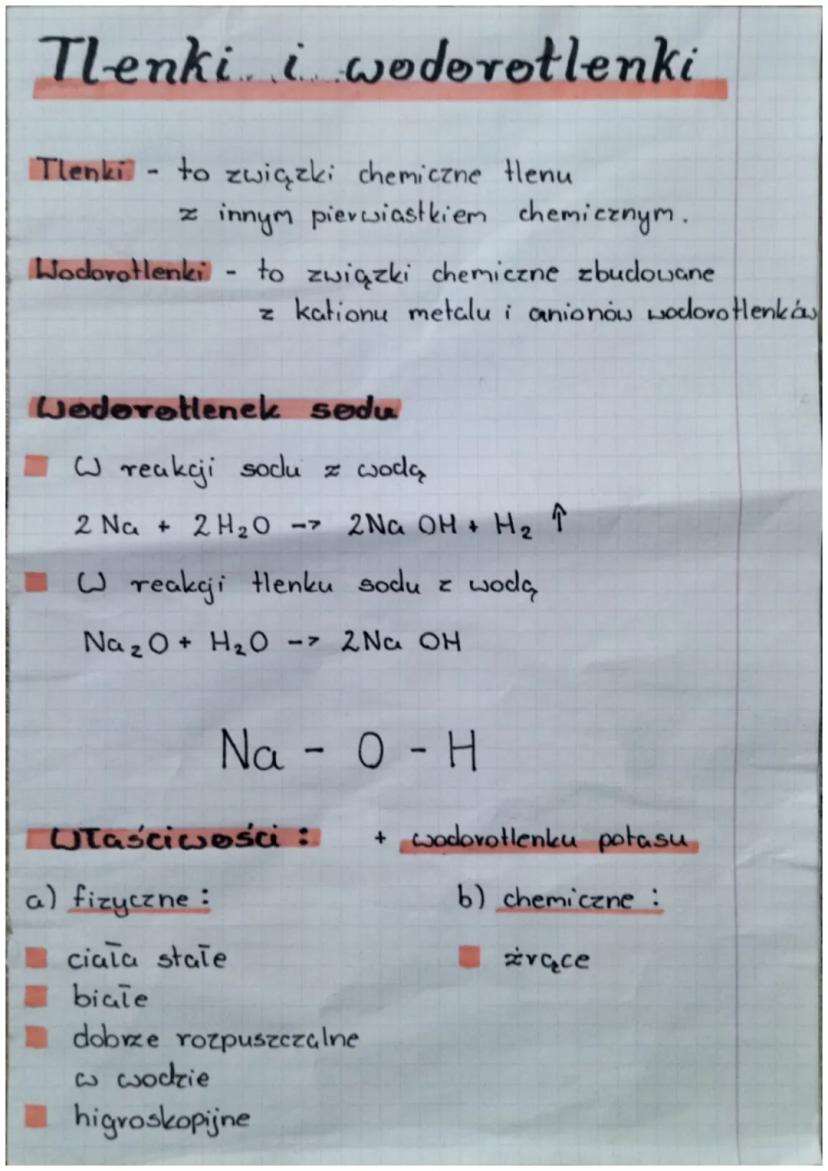 Tlenki i wodorotlenki
Tlenki - to związki chemiczne tlenu
z innym pierwiastkiem chemicznym.
Wodorotlenki - to związki chemiczne zbudowane
z kationu metalu i anionów wodorotlenków
Wodorotlenek sodu
W reakcji sodu z wodą
2 Na + 2 H₂O --> 2Na OH + H₂ ↑
W reakcji tlenku sodu z wodą
Na₂O + H₂O --> 2Na OH
Na - O - H
Właściwości : + wodorotlenku potasu
a) fizyczne : b) chemiczne :
ciała stałe żrące
białe
dobrze rozpuszczalne
w wodzie
higroskopijne